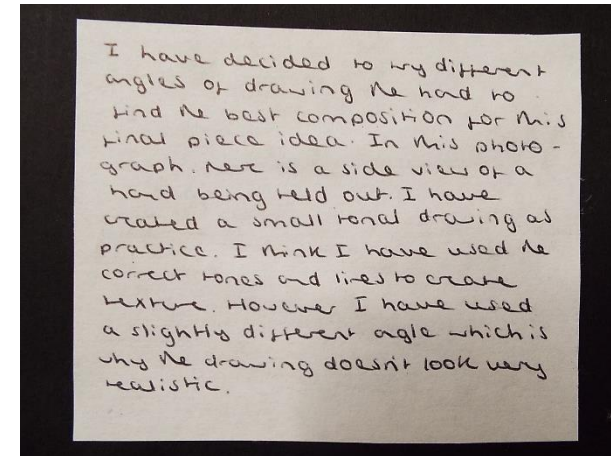 I have decided to try different
angles of drawing the hand to
find the best composition for this
final piece idea. In this photo-
graph. there is a side view of a
hand being held out. I have
created a small tonal drawing as
practice. I think I have used the
correct tones and lines to create
texture. However I have used
a slightly different angle which is
why the drawing doesn't look very
realistic.